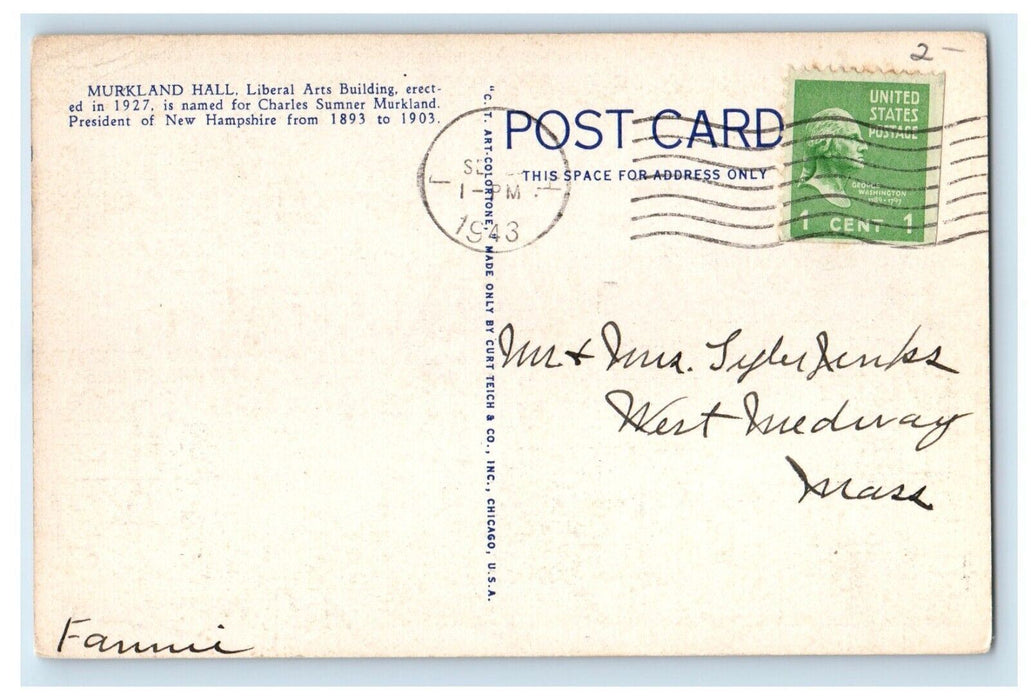 2-
MURKLAND HALL, Liberal Arts Building, erect-
ed in 1927, is named for Charles Sumner Murkland.
President of New Hampshire from 1893 to 1903.
"C. T. ART-COLORTONE" MADE ONLY BY CURT TEICH & CO., INC., CHICAGO, U.S.A.
POST CARD
THIS SPACE FOR ADDRESS ONLY
1-PM
1943
UNITED
STATES
POSTAGE
GEORGE
WASHINGTON
1789-1797
1 CENT 1
Mr & Mrs. Tyler Jenks
West Medway
Mass
Fannie